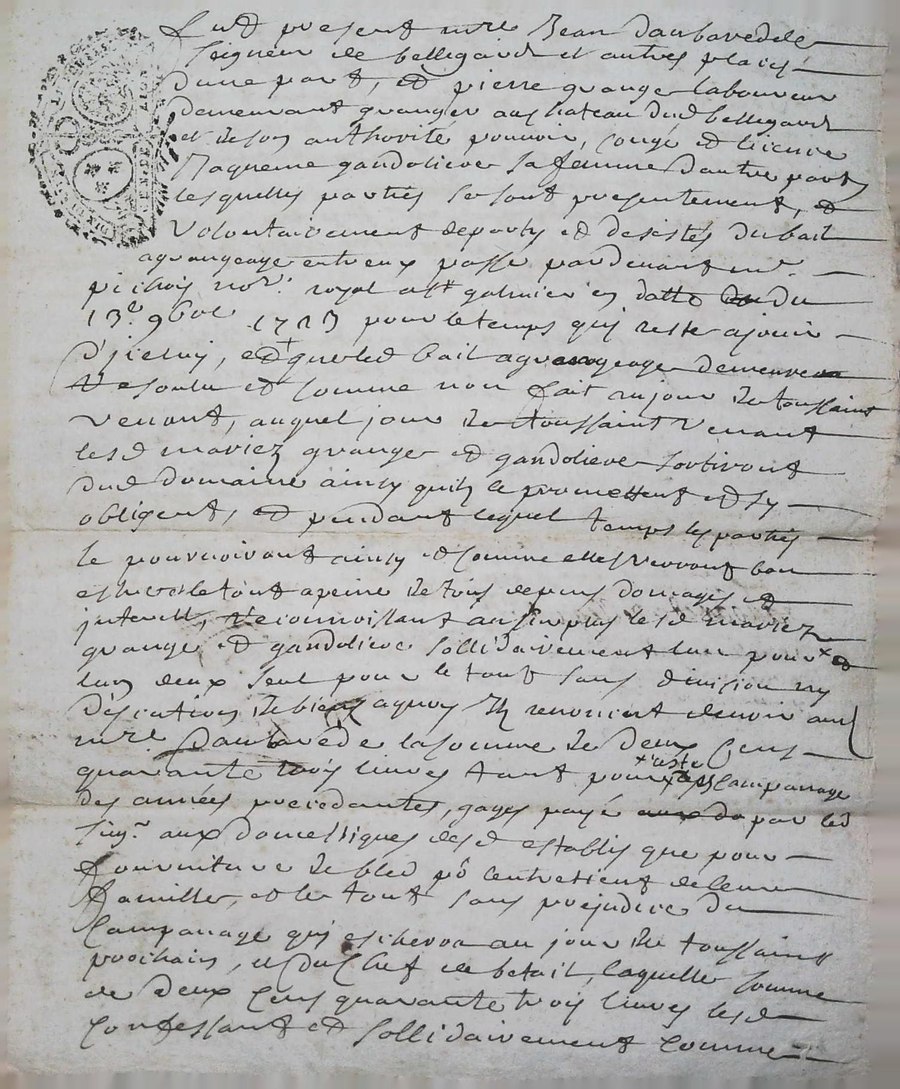 fut present mre Jean Daubarede
seigneur de bellegarde et autres places
d'une part, et pierre grange laboureur
demeurant granger au chateau dud bellegarde
et de son authorite pouvoir, congé et licence
gandoliere sa femme d'autre part
lesquelles parties se sont presentement, et
volontairement departys et desistés du bail
a grangeage entr'eux passé pardevant mr
pichois nore royal a st galmier en datte du
13e 9bre 1713 pour le temps qui reste a jouir
d'jceluy, et que led bail a grangeage demeurera
resoulu et comme non fait au jour de toussaint
venant, auquel jour de toussaint venant
lesd mariez grange et gandoliere sortiront
dud domaine ainsy quils le promettent et sy
obligent, et pendant lequel temps les parties
le pourvoiront ainsy et comme elles verront bon
estre le tout a peine de tous depens domages et
jnterests, reconnoissant au surplus lesd mariez
grange et gandoliere sollidairement l'un pour et
l'un deux seul pour le tout sans division ny
discution de biens a quoy ils renoncent devoir aud
mre Daubarede la somme de deux cens
quarante trois livres tant pour reste campanage
des années precedantes, gages payé par led
sieur aux domestiques desd establis que pour
fourniture de bled po l'entretient de leur
famille, et le tout sans prejudice du
campanage qui escherra au jour de toussaint
prochain, et du chef de betail, laquelle somme
de deux cens quarante trois livres lesd
confessant et sollidairement comme